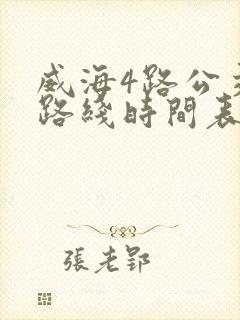 威海4路公交
路綫時間表
張老郢